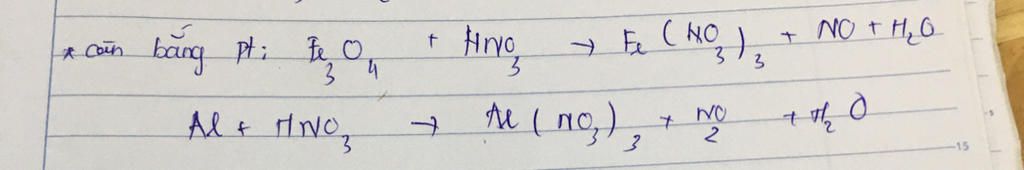 * cân bằng pt: Fe₃O₄ + HNO₃ → Fe(NO₃)₃ + NO + H₂O
Al + HNO₃ → Al(NO₃)₃ + NO₂ + H₂O
15